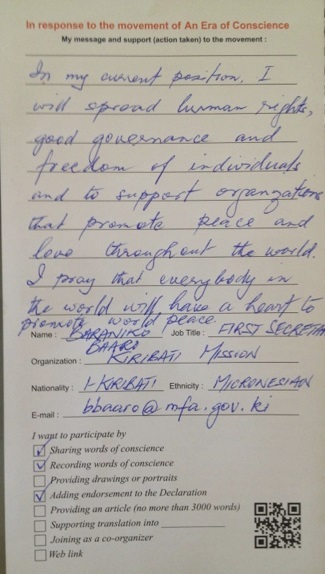 In response to the movement of An Era of Conscience
My message and support (action taken) to the movement :
In my current position, I
will spread human rights,
good governance and
freedom of individuals
and to support organzations
that promote peace and
love throughout the world.
I pray that everybody in
the world will have a heart to
promote world peace.
Name : BARANIKO BAARO Job Title : FIRST SECRETA
Organization : KIRIBATI MISSION
Nationality : I-KIRIBATI Ethnicity : MICRONESIAN
E-mail : bbaaro@mfa.gov.ki
I want to participate by
Sharing words of conscience
Recording words of conscience
Providing drawings or portraits
Adding endorsement to the Declaration
Providing an article (no more than 3000 words)
Supporting translation into
Joining as a co-organizer
Web link